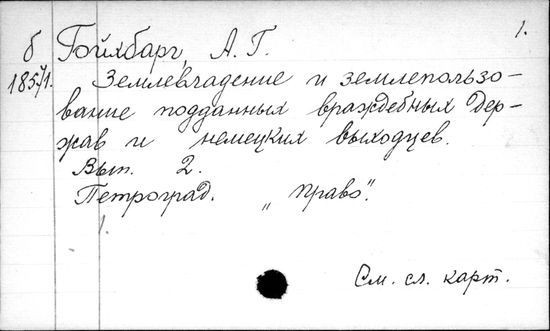 1.
б Гойхбарг, А. Г.
1857/1. Землевладение и землепользо-
вание подданных враждебных дер-
жав и немецких выходцев.
Вып. 2.
Петроград. „Право".
1.
См. сл. карт.